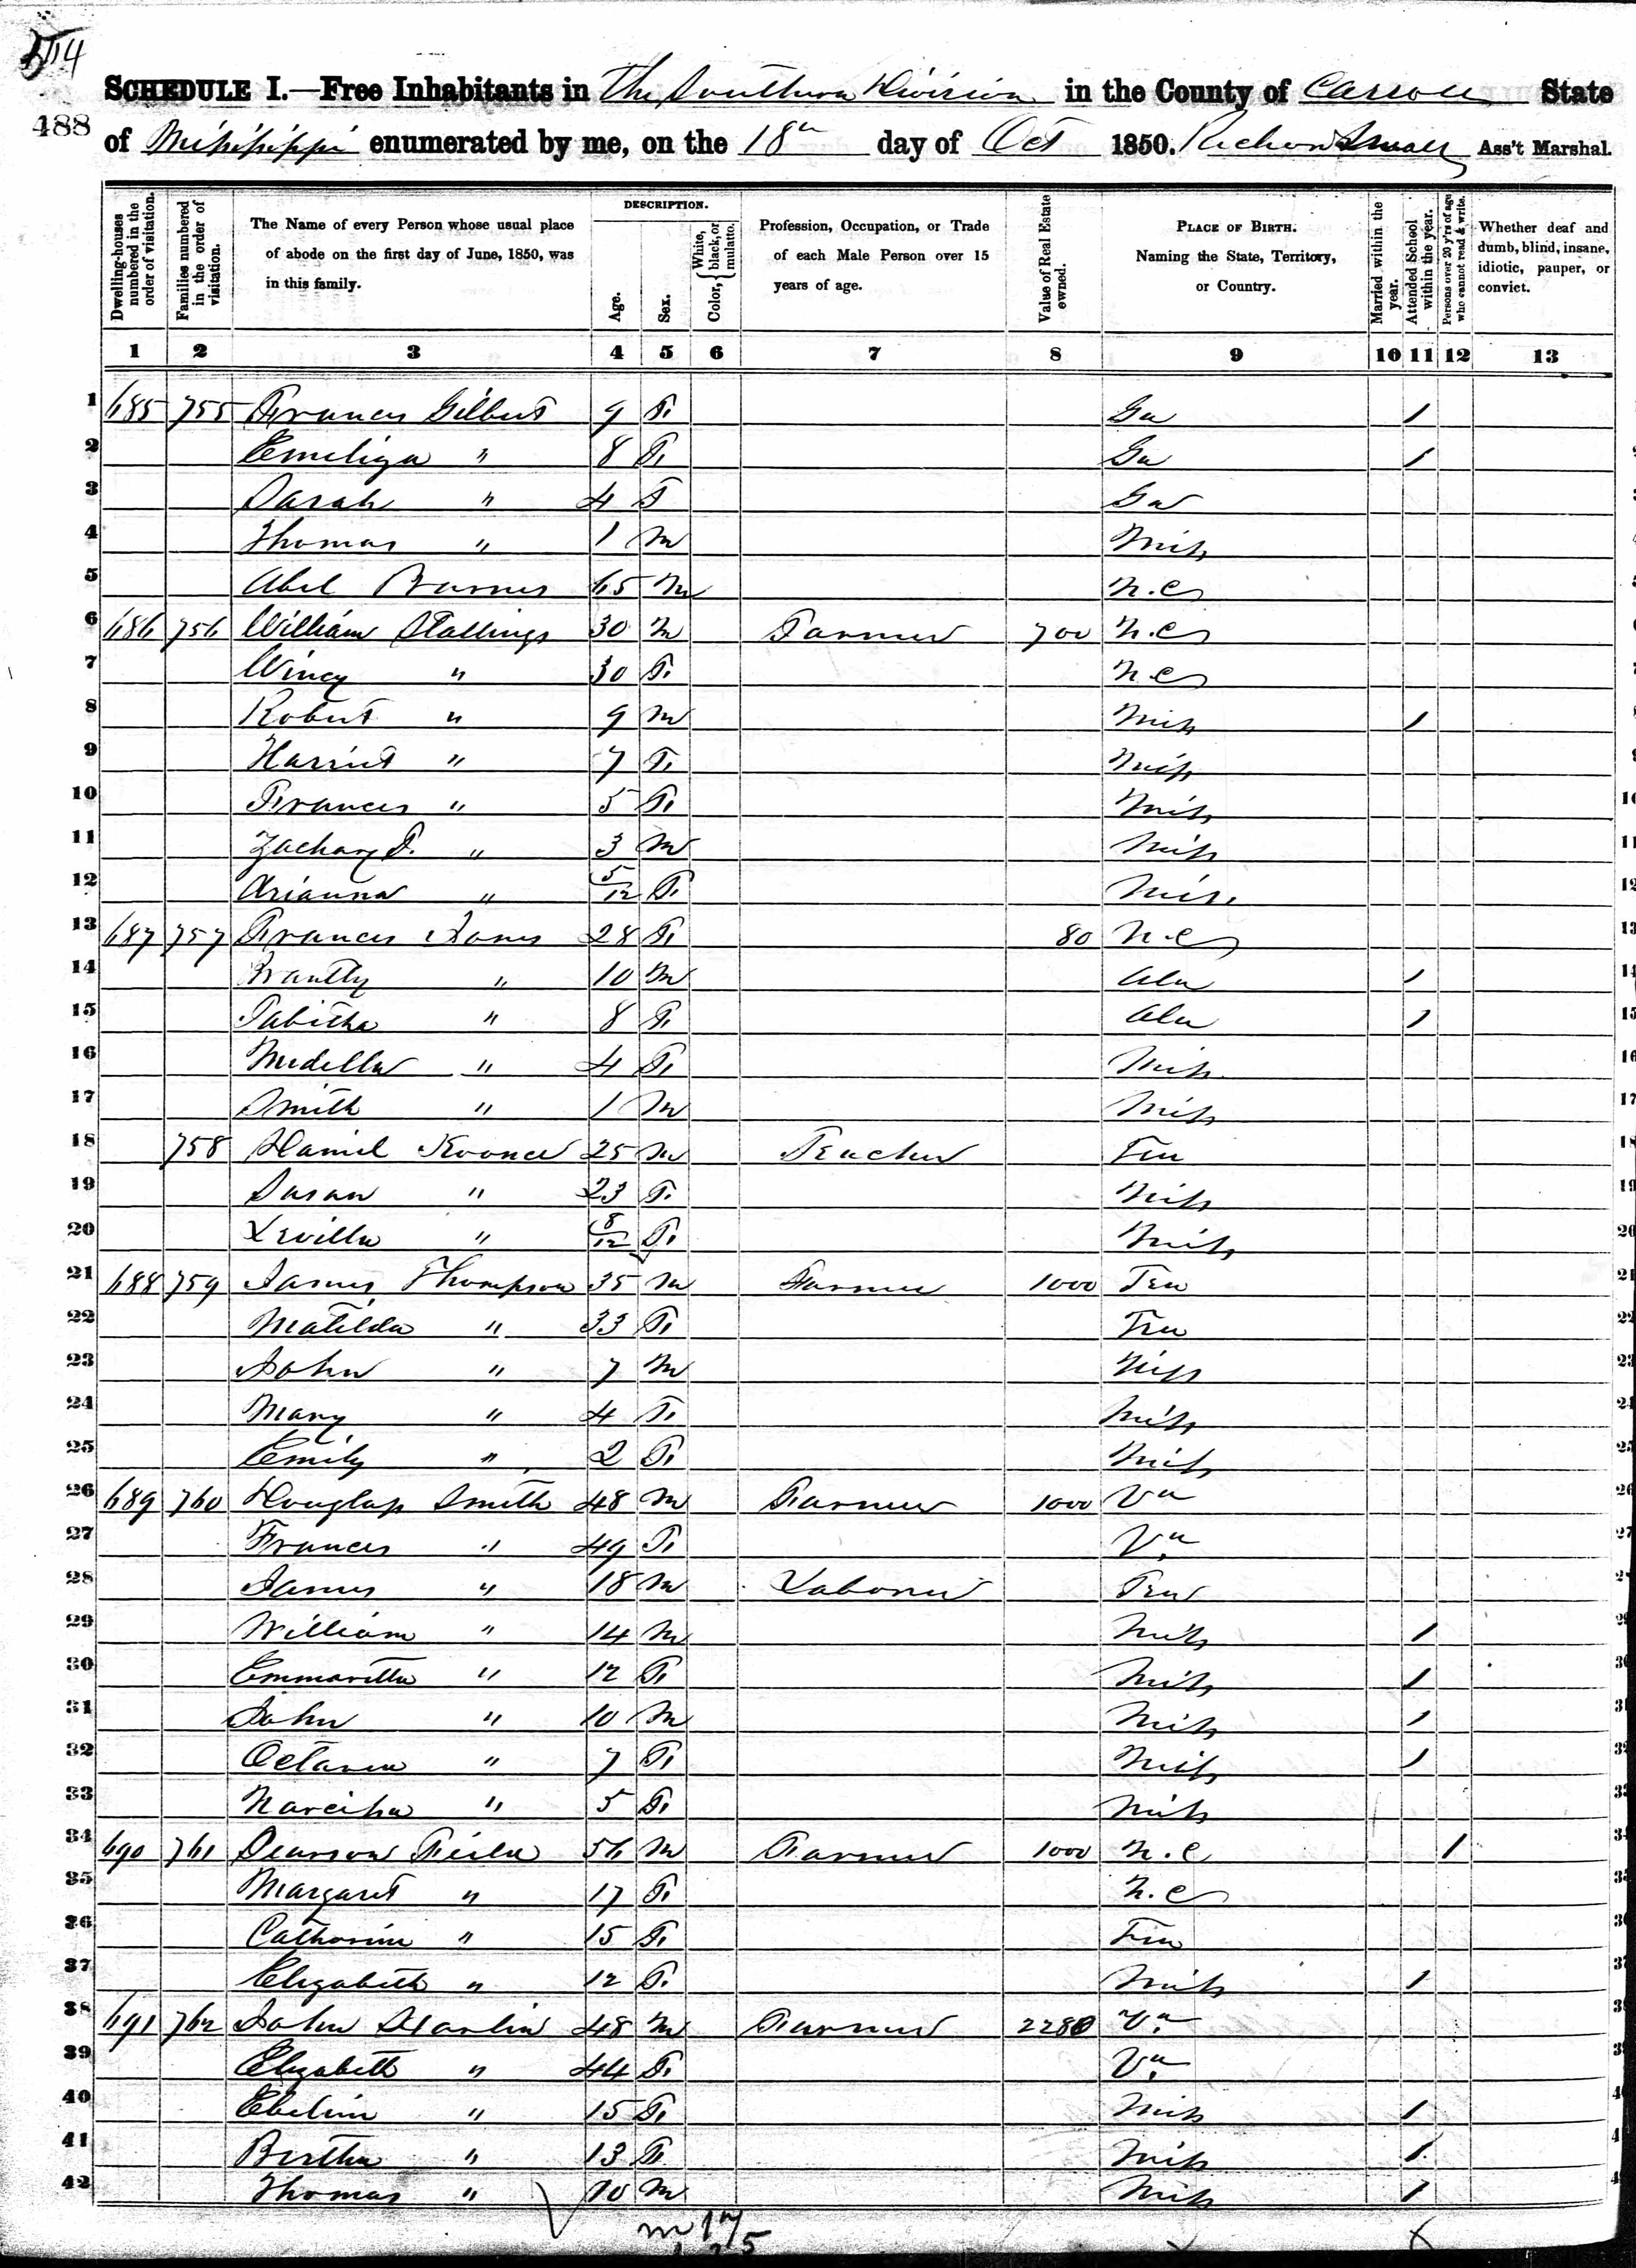 514
SCHEDULE I.—Free Inhabitants in The Southern Division in the County of Carroll State
488
of Mississippi enumerated by me, on the 18th day of Oct 1850. Small Ass't Marshal.
Dwelling-houses numbered in the order of visitation. Families numbered in the order of visitation. The Name of every Person whose usual place of abode on the first day of June, 1850, was in this family. DESCRIPTION. Age. Sex. Color, { White, black, or mulatto. Profession, Occupation, or Trade of each Male Person over 15 years of age. Value of Real Estate owned. PLACE OF BIRTH. Naming the State, Territory, or Country. Married within the year. Attended School within the year. Persons over 20 y'rs of age who cannot read & write. Whether deaf and dumb, blind, insane, idiotic, pauper, or convict.
1 2 3 4 5 6 7 8 9 10 11 12 13
1 685 755 Frances Gilbert 9 F Ga 1
2 Emeliza " 8 F Ga 1
3 Sarah " 4 F Ga
4 Thomas " 1 M Miss
5 Abel 65 M N.C
6 686 756 William Stallings 30 M Farmer 700 N.C
7 Wincy " 30 F N.C
8 Robert " 9 M Miss 1
9 Harriet " 7 F Miss
10 Frances " 5 F Miss
11 Zachary T. " 3 M Miss
12 Arianna " 5/12 F Miss
13 687 757 Frances Jones 28 F 80 N.C
14 Brantly " 10 M Ala 1
15 Tabitha " 8 F Ala 1
16 Medella " 4 F Miss
17 Smith " 1 M Miss
18 758 Daniel Koonce 25 M Teacher Ten
19 Susan " 23 F Miss
20 Levilla " 8/12 F Miss
21 688 759 James Thompson 35 M Farmer 1000 Ten
22 Matilda " 33 F Ten
23 John " 7 M Miss
24 Mary " 4 F Miss
25 Emily " 2 F Miss
26 689 760 Douglass Smith 48 M Farmer 1000 Va
27 Frances " 49 F Va
28 James " 18 M Laborer Ten
29 William " 14 M Miss 1
30 Emmaretta " 12 F Miss 1
31 John " 10 M Miss 1
32 Octavia " 7 F Miss 1
33 Narcissa " 5 F Miss
34 690 761 Fields 56 M Farmer 1000 N.C 1
35 Margaret " 17 F N.C
36 Catharine " 15 F Ten
37 Elizabeth " 12 F Miss 1
38 691 762 John 48 M Farmer 2280 Va
39 Elizabeth " 44 F Va
40 Eveline " 15 F Miss 1
41 Bertha " 13 F Miss 1
42 Thomas " 10 M Miss 1
m 17